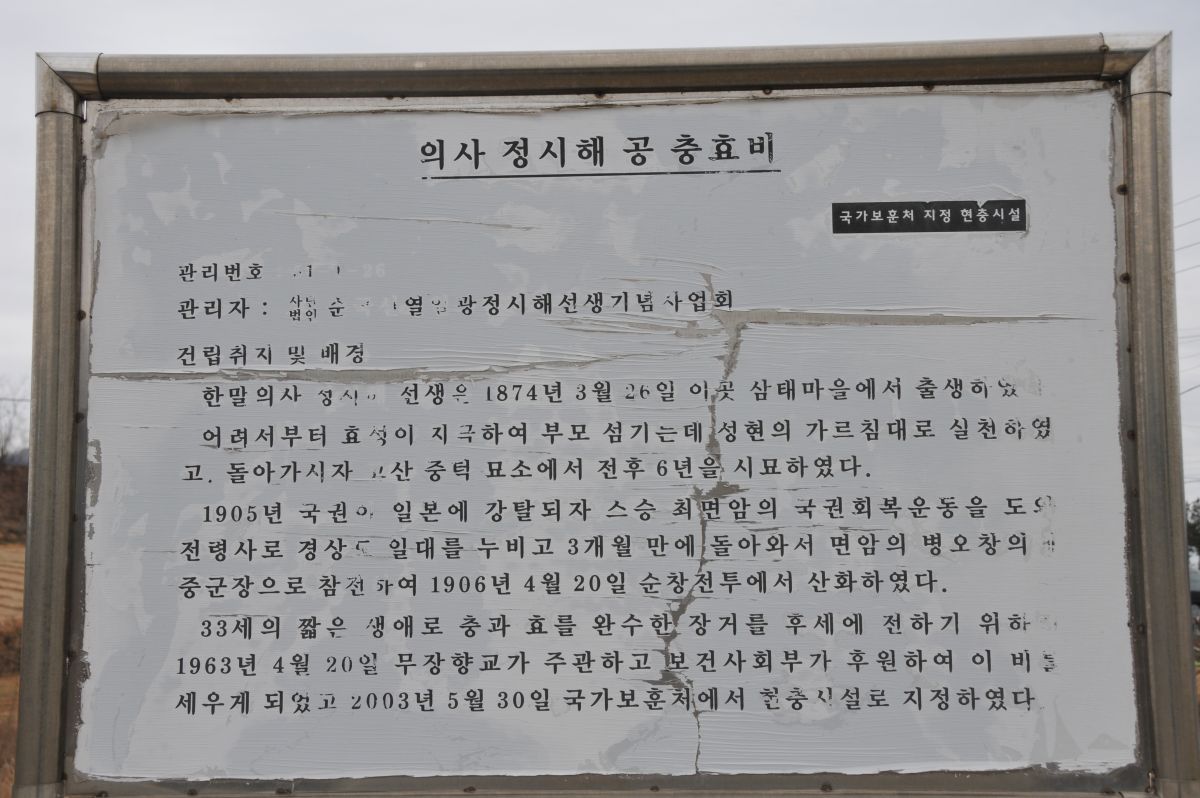 의사 정시해 공 충효비
국가보훈처 지정 현충시설
관리번호
관리자 : 사단법인 정시해선생기념사업회
건립취지 및 배경
한말의사 정시해 선생은 1874년 3월 26일 이곳 삼태마을에서 출생하였
어려서부터 효성이 지극하여 부모 섬기는데 성현의 가르침대로 실천하였
고. 돌아가시자 중턱 묘소에서 전후 6년을 시묘하였다.
1905년 국권이 일본에 강탈되자 스승 최면암의 국권회복운동을 도와
전령사로 경상도 일대를 누비고 3개월 만에 돌아와서 면암의 병오창의
중군장으로 참전하여 1906년 4월 20일 순창전투에서 산화하였다.
33세의 짧은 생애로 충과 효를 완수한 장거를 후세에 전하기 위하
1963년 4월 20일 무장향교가 주관하고 보건사회부가 후원하여 이 비를
세우게 되었고 2003년 5월 30일 국가보훈처에서 현충시설로 지정하였다